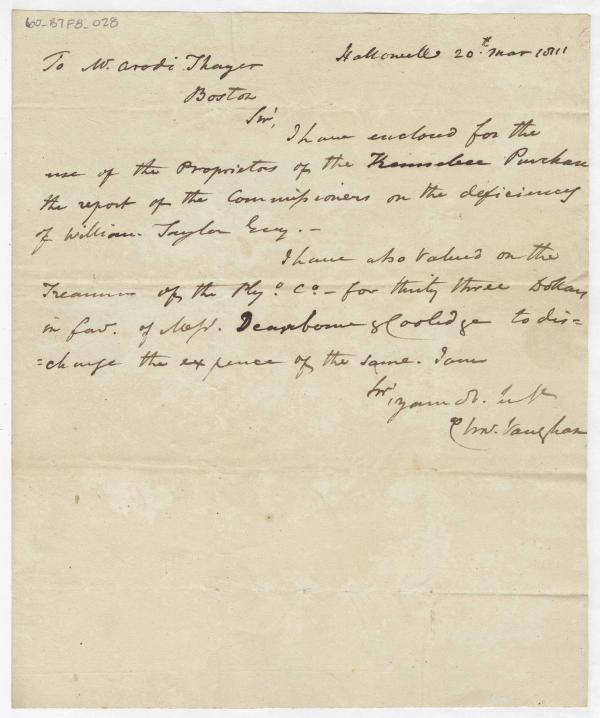 60-B7F8_028
Hallowell 20th Mar 1811
To Mr. Arodi Thayer
Boston
Sir,
I have enclosed for the
use of the Proprietors of the Kennebec Purchase
the report of the Commissioners on the deficiency
of William Taylor Esq. –
I have also valued on the
Treasurer of the Plyo. Co – for thirty three Dollars
in fav. of Messrs. Dearborne & Coolidge to dis=
=charge the expence of the same. I am
Sir,
your
Vaughan